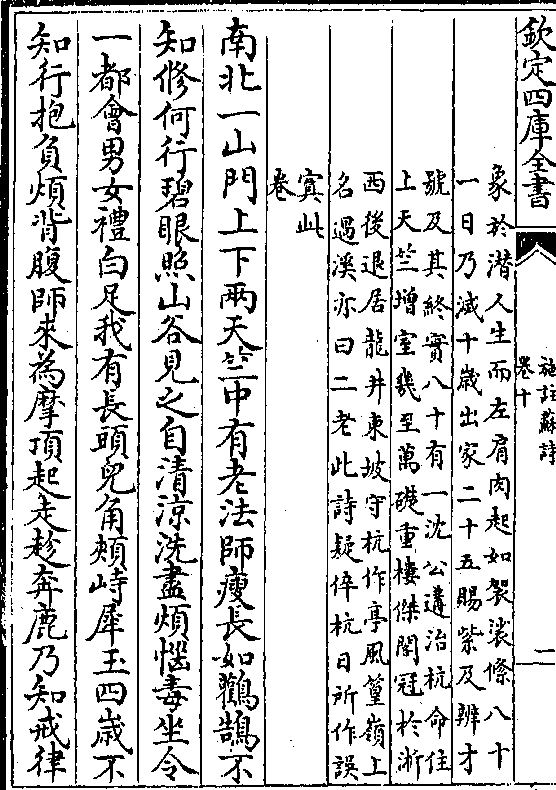 欽定四庫全書
施註蘇詩
卷十
二
象於潜人生而左肩肉起如袈裟條八十
一日乃滅十歳出家二十五賜紫及辨才
號及其終實八十有一沈公遘治杭命住
上天竺增室幾至萬礎重樓傑閣冠於浙
西後退居龍井東坡守杭作亭風篁嶺上
名過溪亦曰二老此詩疑倅杭日所作誤
寘此
卷
南北一山門上下兩天竺中有老法師瘦長如鸛鵠不
知修何行碧眼照山谷見之自清涼洗盡煩惱毒坐令
一都會男女禮白足我有長頭兒角頰峙犀玉四歳不
知行抱負煩背腹師來為摩頂起走趁奔鹿乃知戒律